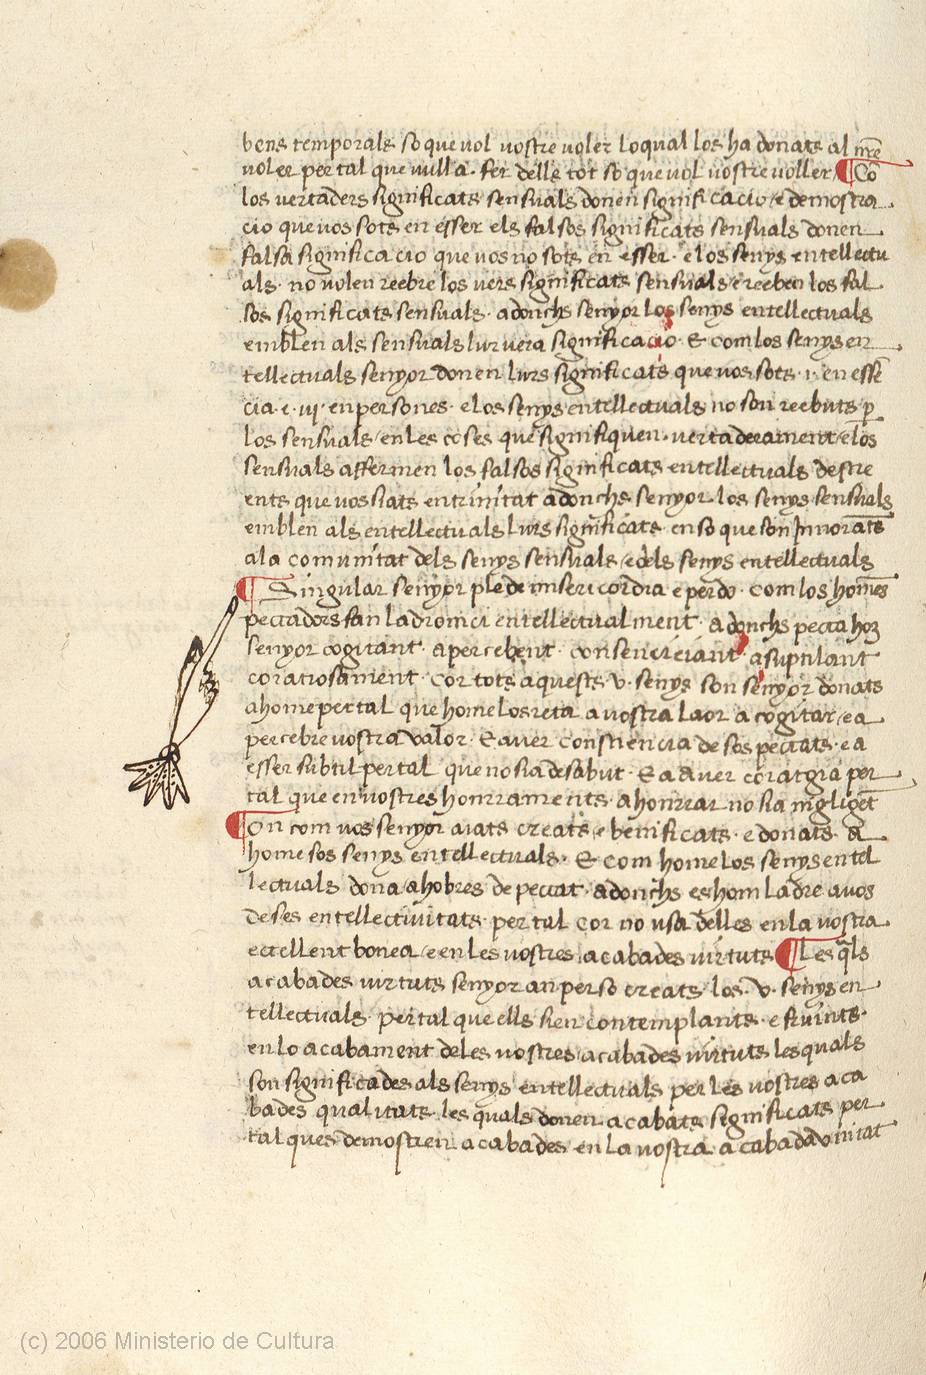 bens temporals so que vol vostre voler lo qual los ha donats al nr̃e
voler per tal que vulla · fer delle tot so que vol vostre voller ¶ Cõ
los vertaders significats sensuals donen significacio / e demostra
cio que vos sots en esser els falsos significats sensuals donen
falsa significacio que vos no sots en esser · e los senys entellectu
als · no volen reebre los vers significats sensuals / e reeben los fal
sos significats sensuals · adonchs senyor los senys entellectuals
emblen als sensuals lur vera significacio · E com los senys en
tellectuals senyor donen lurs significats que vos sots · i · en essẽ
cia · e · iij · en persones · e los senys entellectuals no son reebuts p̲
los sensuals / en les coses que signifiquen · vertaderament / e los
sensuals affermen los falsos significats entellectuals descre
ents que vos siats en trinitat adonchs senyor los senys sensuals
emblen als entellectuals lurs significats en so que son Innorats
a la comunitat dels senys sensuals / e dels senys entellectuals
¶ Singular senyor ple de misericordia e perdo · com los homẽs
peccadors fan ladronici entellectualment · adonchs pecca hom
senyor cogitant · apercebent · consenciejant · asuptilant
coratiosament · cor tots aquests v · senys son senyor donats
a home per tal que home los reta a vostra laor a cogitar / e a
percebre vostra valor · E aver consciencia de sos peccats · e a
esser subtil per tal que no sia desabut · E a aver coratgia per
tal que en vostres honrraments · a honrrar no sia nigligẽt
¶ On com vos senyor aiats creats / e benificats · e donats · a
home sos senys entellectuals · E com home los senys entel
lectuals dona / a hobres de peccat · adonchs es hom ladre a vos
de ses entellectivitats · per tal cor no usa delles en la vostra
excellent bonea / e en les vostres acabades virtuts ¶ Les q̃ls
acabades virtuts senyor an per so creats los · v · senys en
tellectuals · per tal que ells sien contemplants · e fruints ·
en lo acabament de les vostres acabades virtuts les quals
son significades als senys entellectuals per les vostres aca
bades qualitats les quals donen acabats significats per
tal ques demostren acabades en la vostra acabada divinitat
(c) 2006 Ministerio de Cultura